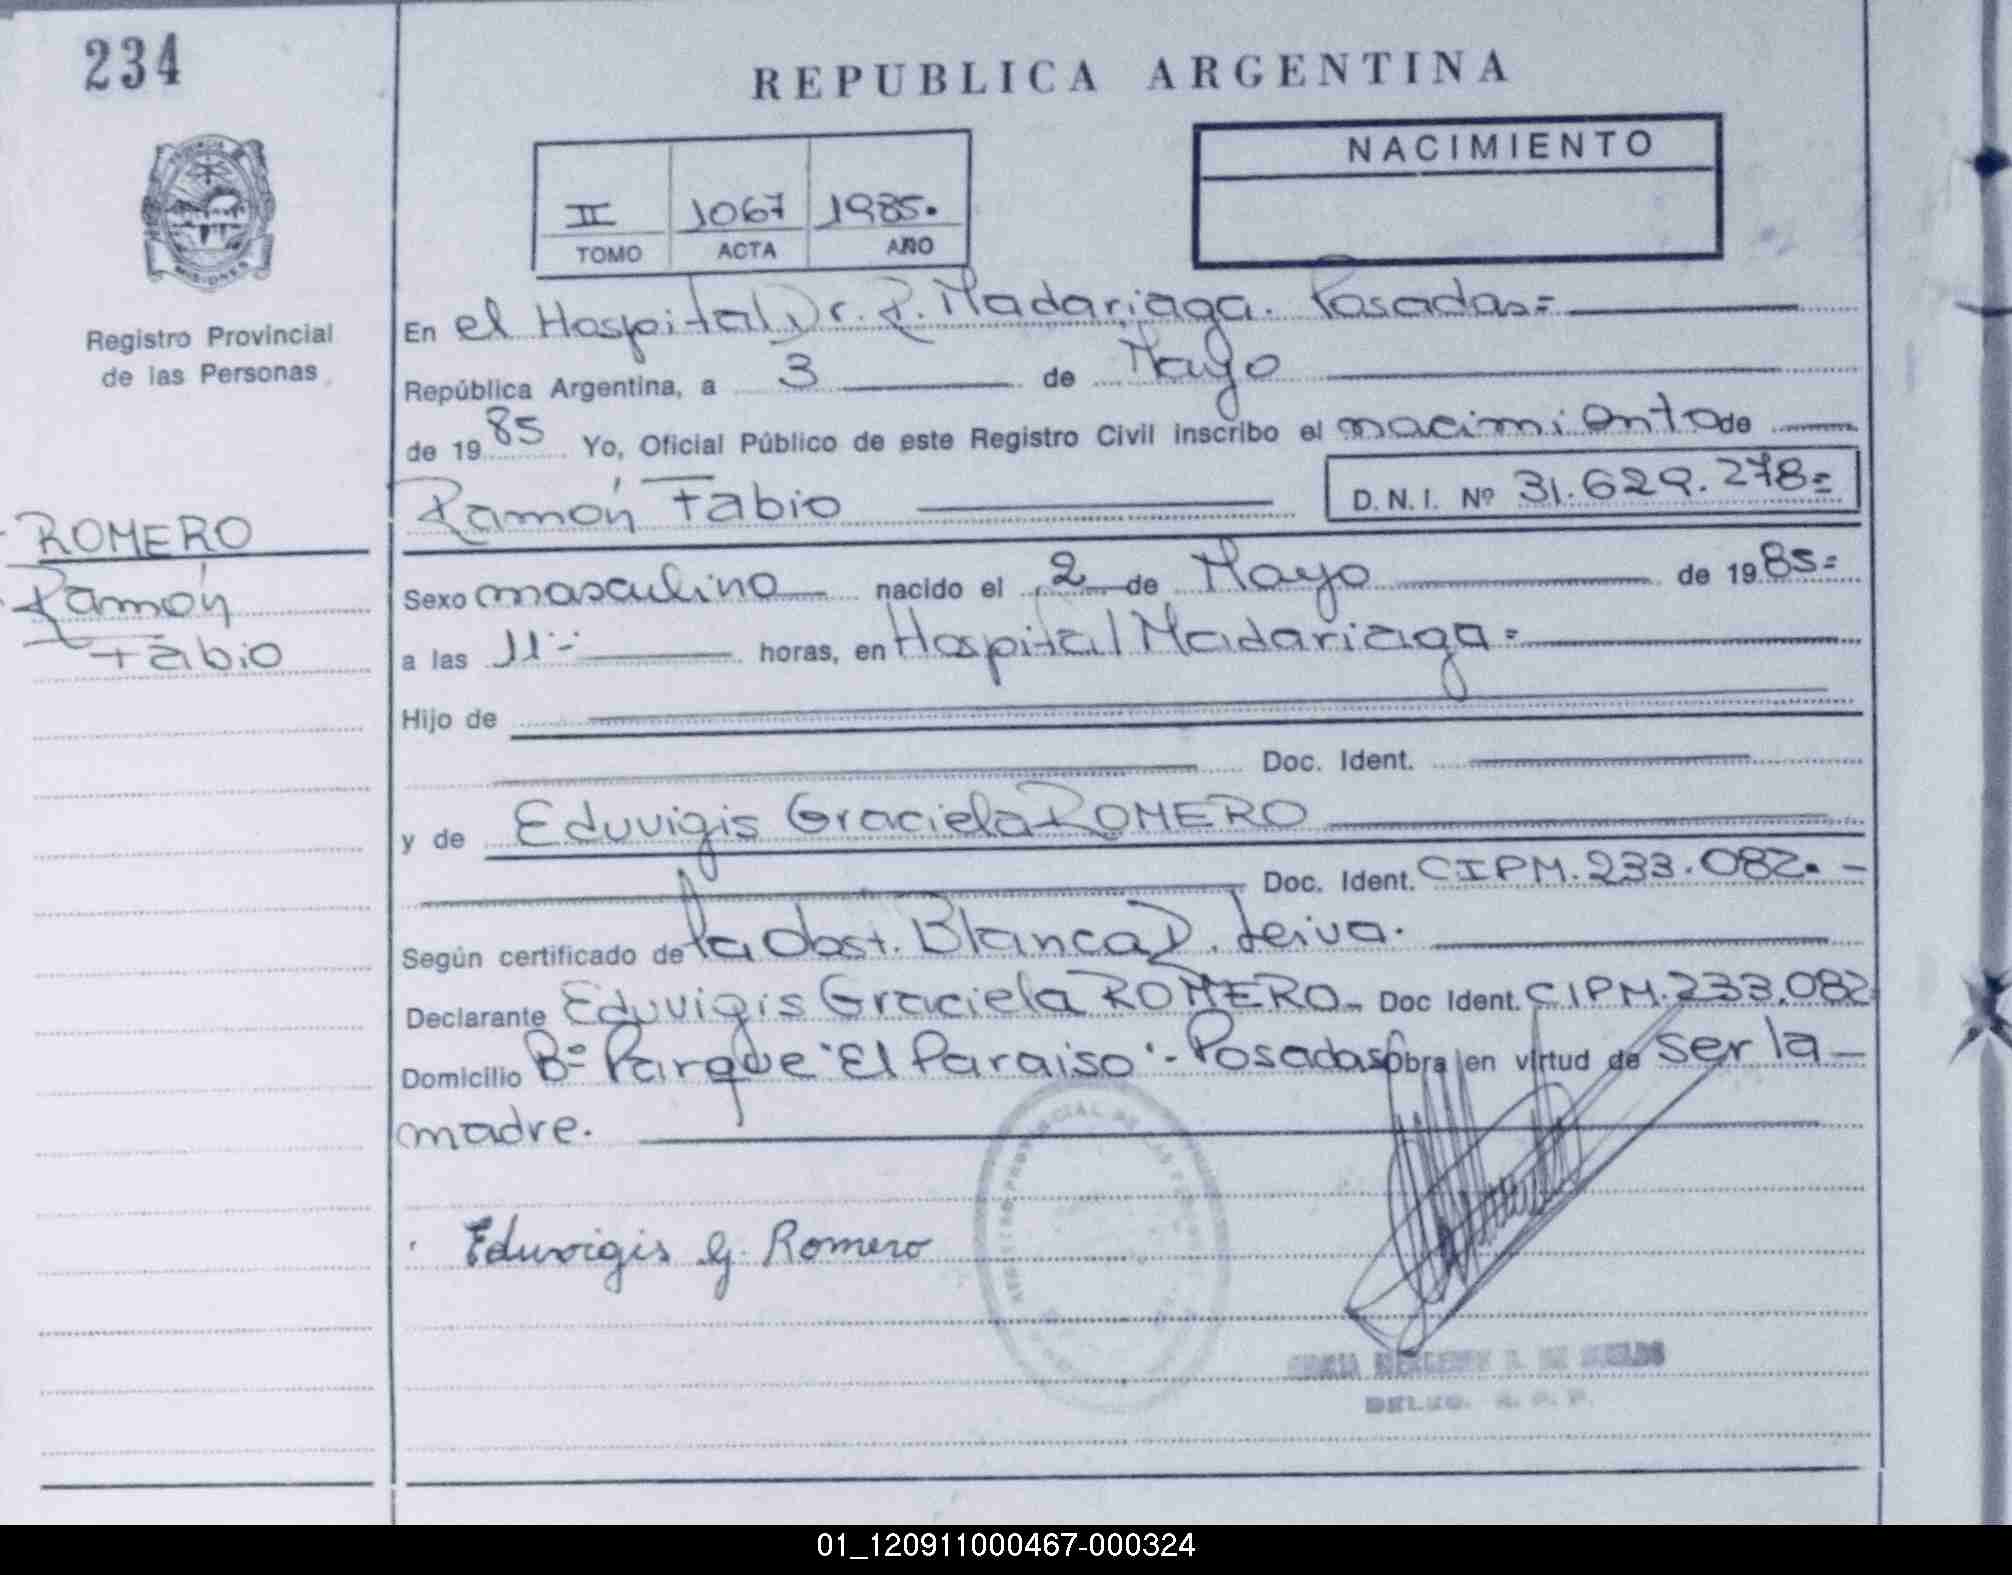 234
REPUBLICA ARGENTINA
NACIMIENTO
II 1067 1985.
TOMO ACTA AÑO
MISIONES
Registro Provincial
de las Personas
En el Hospital Dr. R. Madariaga. Posadas=
República Argentina, a 3 de Mayo
de 1985 Yo, Oficial Público de este Registro Civil inscribo el nacimiento de
Ramón Fabio D.N.I. Nº 31.629.278=
ROMERO
Ramón
Fabio
Sexo masculino nacido el 2 de Mayo de 1985=
a las 11- horas, en Hospital Madariaga=
Hijo de
Doc. Ident.
y de Eduvigis Graciela ROMERO
Doc. Ident. CIPM.233.082.-
Según certificado de la Obst. Blanca D. Leiva.
Declarante Eduvigis Graciela ROMERO- Doc Ident. CIPM.233.082
Domicilio Bº Parque "El Paraiso"- Posadas Obra en virtud de ser la
madre.
Eduvigis G. Romero
01_120911000467-000324